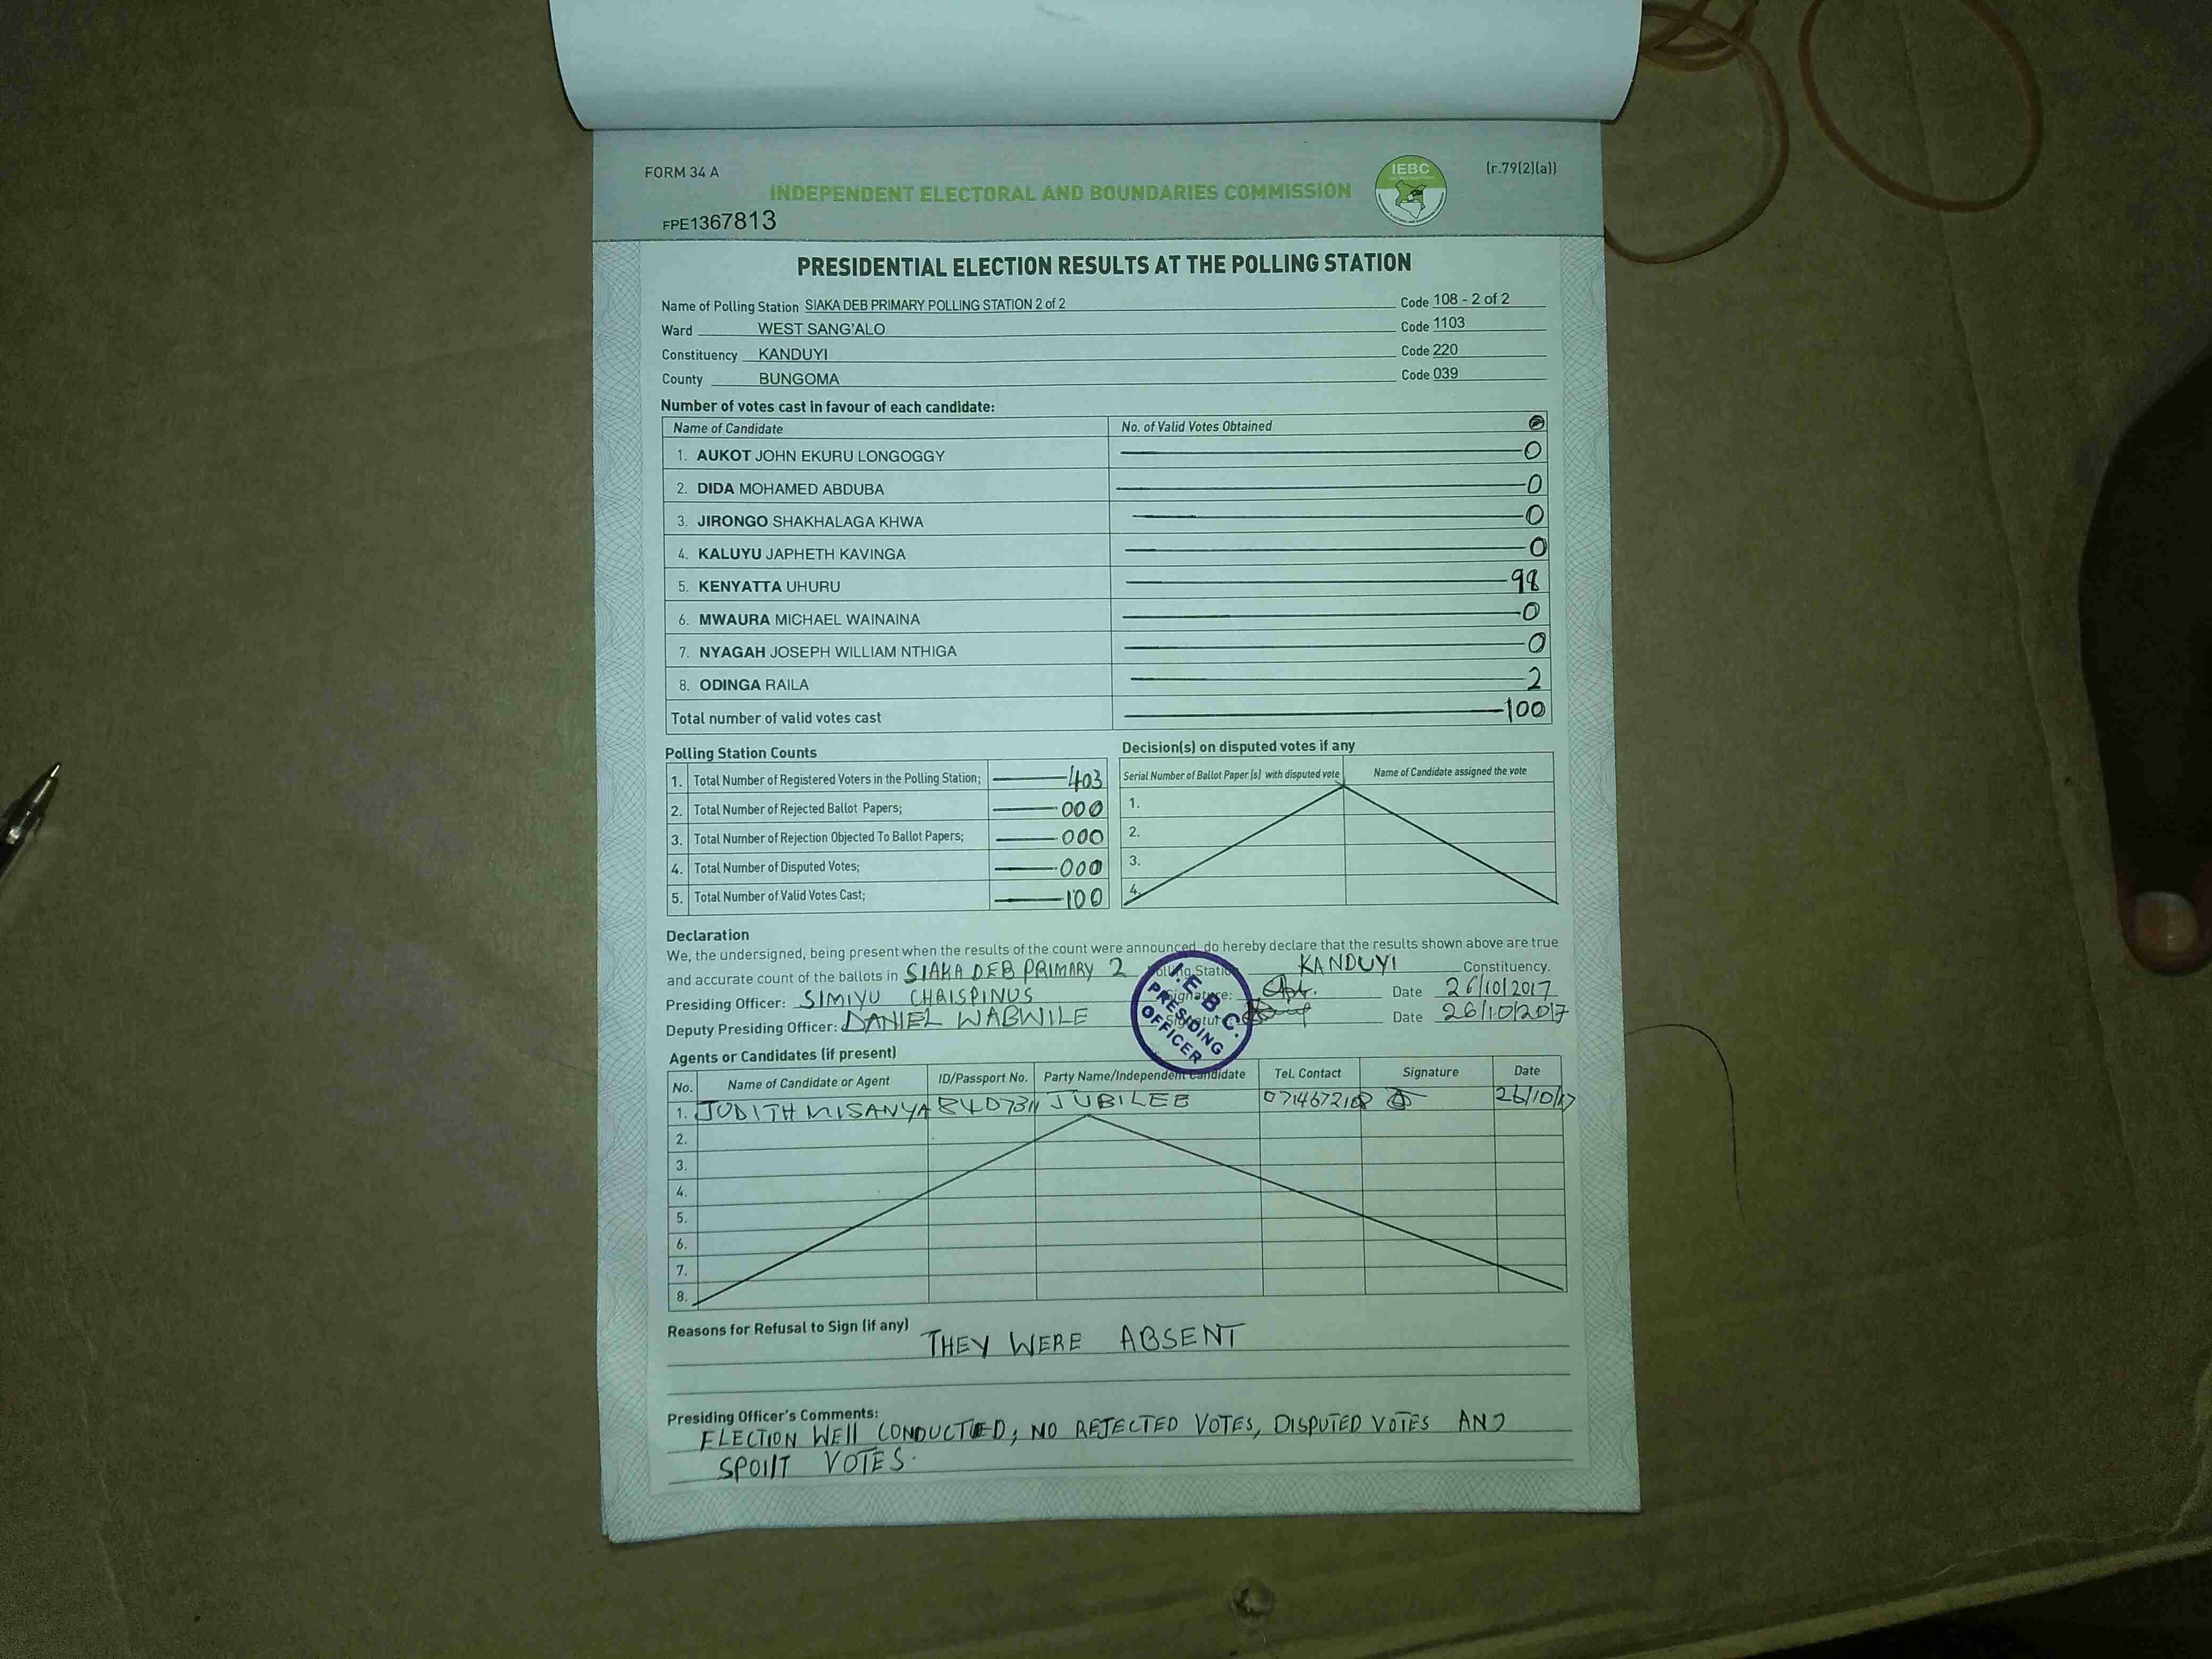 FORM 34 A
IEBC
(r.79(2)(a))
INDEPENDENT ELECTORAL AND BOUNDARIES COMMISSION
FPE1367813
PRESIDENTIAL ELECTION RESULTS AT THE POLLING STATION
Name of Polling Station SIAKA DEB PRIMARY POLLING STATION 2 of 2 Code 108 - 2 of 2
Ward WEST SANG'ALO Code 1103
Constituency KANDUYI Code 220
County BUNGOMA Code 039
Number of votes cast in favour of each candidate:
Name of Candidate No. of Valid Votes Obtained
1. AUKOT JOHN EKURU LONGOGGY 0
2. DIDA MOHAMED ABDUBA 0
3. JIRONGO SHAKHALAGA KHWA 0
4. KALUYU JAPHETH KAVINGA 0
5. KENYATTA UHURU 98
6. MWAURA MICHAEL WAINAINA 0
7. NYAGAH JOSEPH WILLIAM NTHIGA 0
8. ODINGA RAILA 2
Total number of valid votes cast 100
Polling Station Counts
1. Total Number of Registered Voters in the Polling Station; 403
2. Total Number of Rejected Ballot Papers; 000
3. Total Number of Rejection Objected To Ballot Papers; 000
4. Total Number of Disputed Votes; 000
5. Total Number of Valid Votes Cast; 100
Decision(s) on disputed votes if any
Serial Number of Ballot Paper (s) with disputed vote Name of Candidate assigned the vote
1.
2.
3.
4.
Declaration
We, the undersigned, being present when the results of the count were announced, do hereby declare that the results shown above are true
and accurate count of the ballots in SIAKA DEB PRIMARY 2 Polling Station KANDUYI Constituency.
Presiding Officer: SIMIYU CHRISPINUS Signature: Date 26/10/2017
Deputy Presiding Officer: DANIEL WABWILE Signature: Date 26/10/2017
I.E.B.C.
PRESIDING
OFFICER
Agents or Candidates (if present)
No. Name of Candidate or Agent ID/Passport No. Party Name/Independent Candidate Tel. Contact Signature Date
1. JUDITH JUBILEE 26/10/17
2.
3.
4.
5.
6.
7.
8.
Reasons for Refusal to Sign (if any) THEY WERE ABSENT
Presiding Officer's Comments:
ELECTION WEll CONDUCTED, NO REJECTED VOTES, DISPUTED VOTES AND
SPOIlT VOTES.